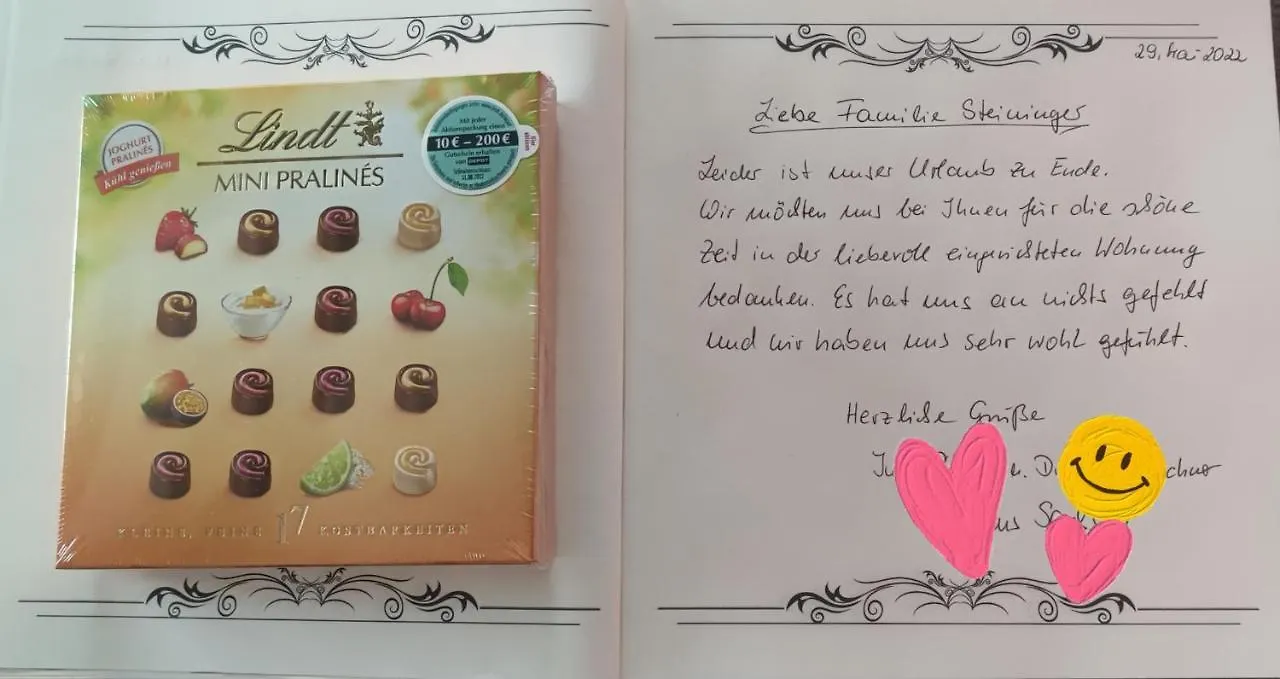 JOGHURT
PRALINÉS
Kühl genießen
Lindt
MINI PRALINÉS
Mit jeder
Aktionspackung einen
10 € – 200 €
Gutschein erhalten
von DEPOT
31.08.2022
KLEINE, FEINE 17 KOSTBARKEITEN
29. Mai 2022
Liebe Familie Steininger
Leider ist unser Urlaub zu Ende.
Wir möchten uns bei Ihnen für die schöne
Zeit in der liebevoll eingerichteten Wohnung
bedanken. Es hat uns an nichts gefehlt
und wir haben uns sehr wohl gefühlt.
Herzliche Grüße